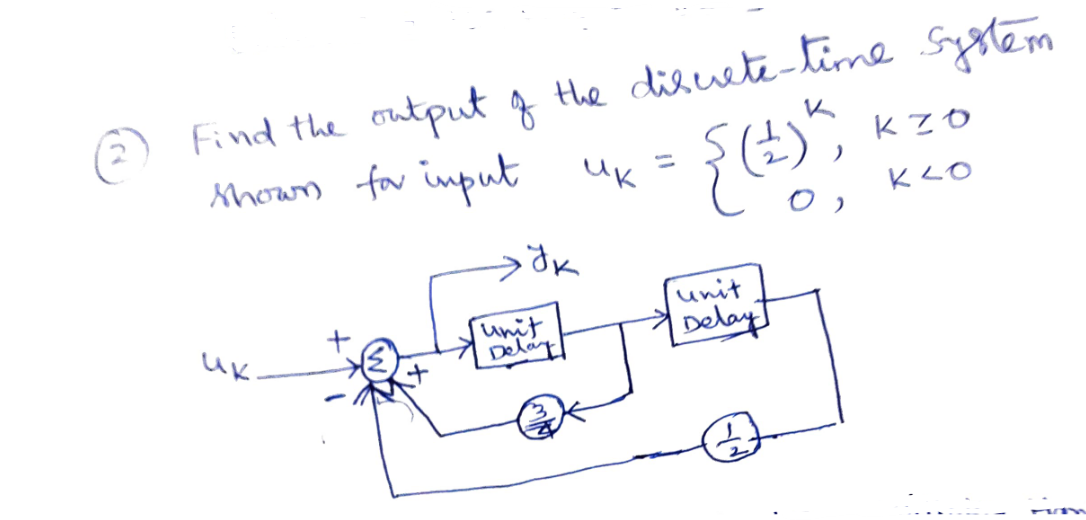 ② Find the output of the discrete-time system
shown for input u_K = { (1/2)^K, K ≥ 0
0, K < 0
y_K
unit
Delay
unit
Delay
+
u_K
Σ
+
-
3/4
1/2